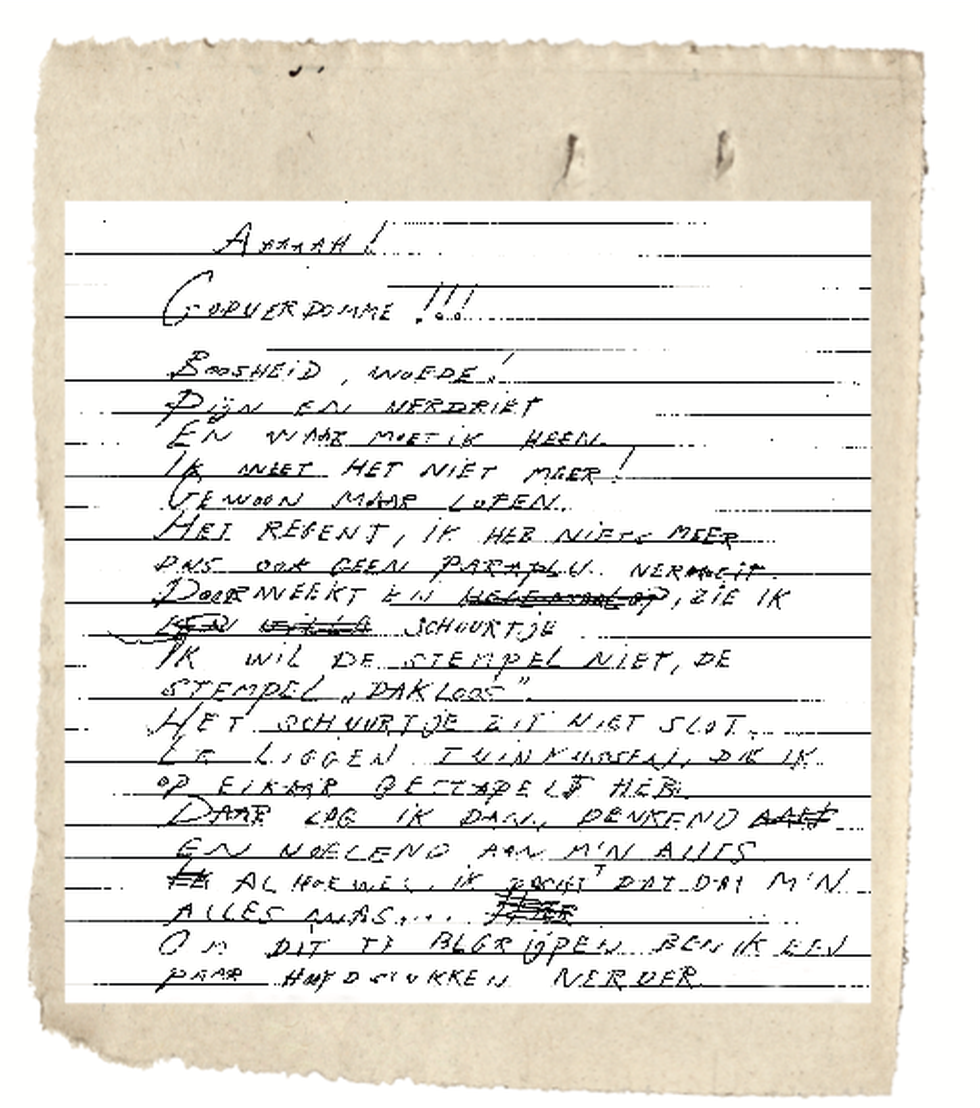 Aaaaah!
Godverdomme !!!
Boosheid, woede!
Pijn en verdriet
En waar moet ik heen.
Ik weet het niet meer!
Gewoon maar lopen.
Het regent, ik heb niets meer
dus ook geen paraplu.
Doorweekt en helemaal op, zie ik
een villa schuurtje
Ik wil de stempel niet, de
stempel „dakloos”.
Het schuurtje zit niet slot.
Er liggen tuinkussen, die ik
op elkaar gestapeld heb.
Daar lag ik dan, denkend
en voelend aan m'n alles
Alhoewel, ik dacht dat dat m'n
alles was....
Om dit te begrijpen ben ik een
paar hoofdstukken verder.